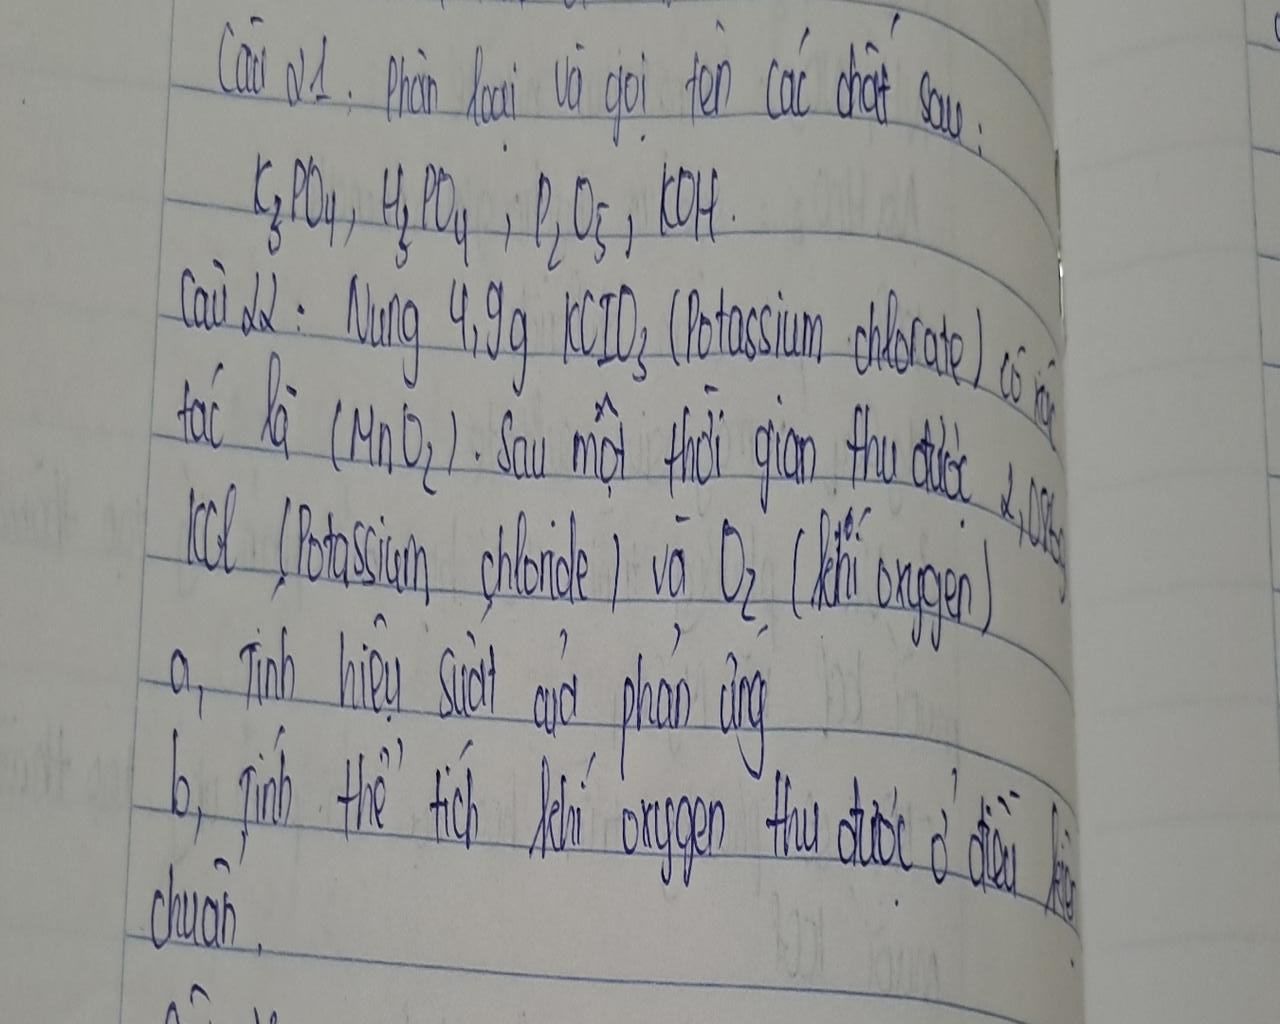 Câu 21. Phân loại và gọi tên các chất sau:
K₃PO₄, H₃PO₄, P₂O₅, KOH.
Câu 22: Nung 4,9g KClO₃ (Potassium chlorate) có xúc
tác là (MnO₂). Sau một thời gian thu được
KCl (Potassium chloride) và O₂ (khí oxygen)
a, Tính hiệu suất của phản ứng
b, Tính thể tích khí oxygen thu được ở điều kiện
chuẩn.